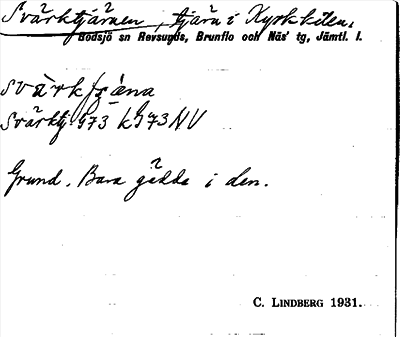 Svärktjärnen, tjärn i Kyrkkilen.
Bodsjö sn Revsunds, Brunflo och Näs' tg, Jämtl. l.
Svärktj. G73 kG73NV
Grund. Bara gädda i den.
C. LINDBERG 1931.